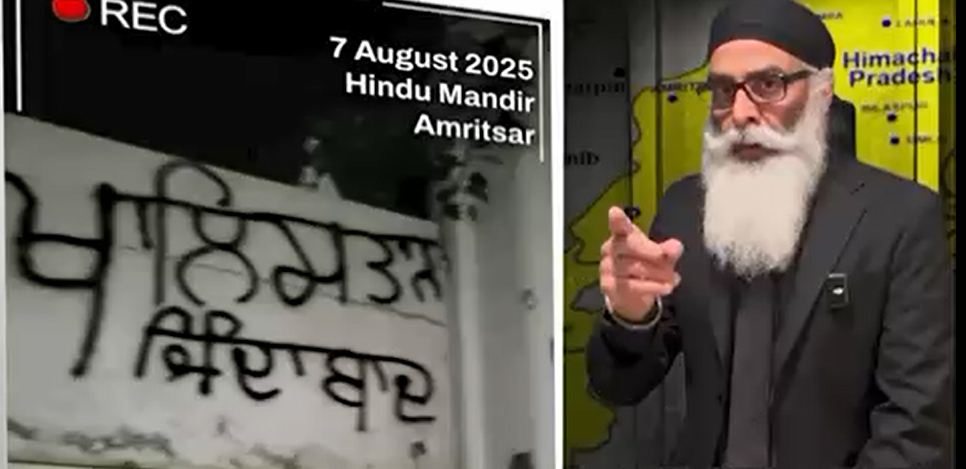 REC
7 August 2025
Hindu Mandir
Amritsar
ਖਾਲਿਸਤਾਨ
ਜ਼ਿੰਦਾਬਾਦ
Himacha
Pradesh
BILASPUR